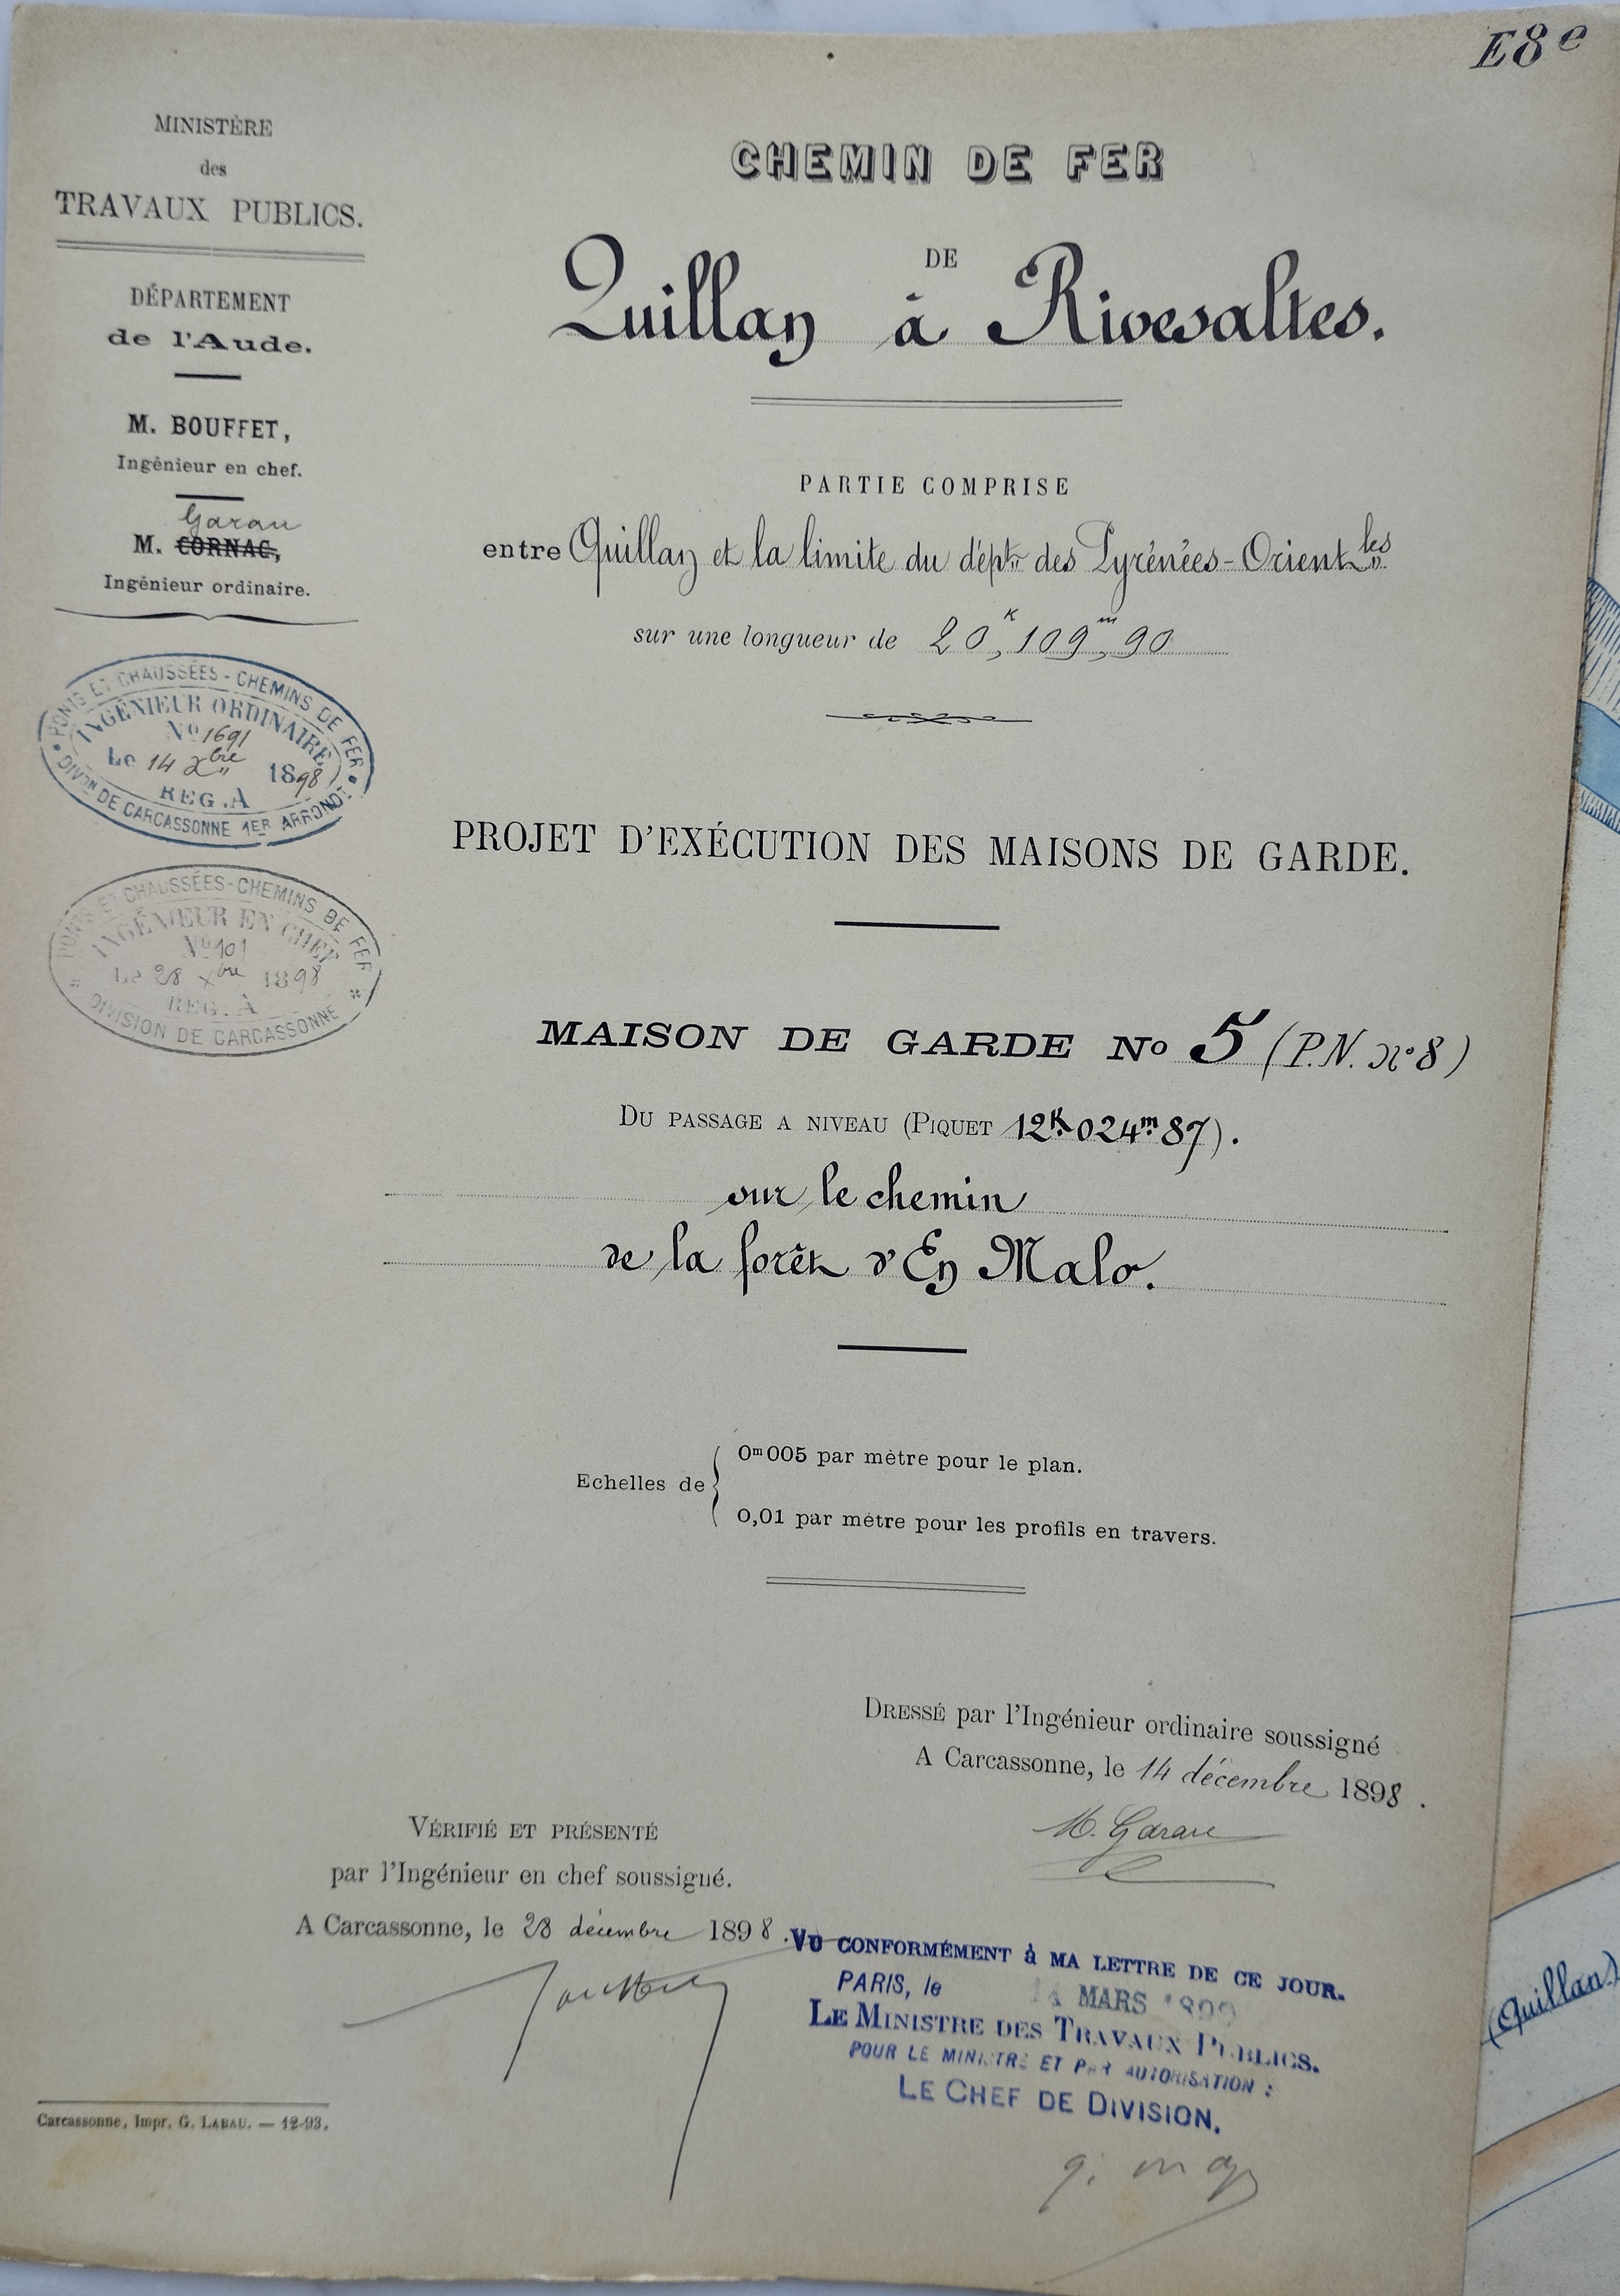 E8e
MINISTÈRE
des
TRAVAUX PUBLICS.
DÉPARTEMENT
de l'Aude.
M. BOUFFET,
Ingénieur en chef.
Garau
M. CORNAC,
Ingénieur ordinaire.
PONTS ET CHAUSSÉES - CHEMINS DE FER
INGÉNIEUR ORDINAIRE
No 1691
Le 14 Xbre 1898
REG. A
DIVON DE CARCASSONNE 1ER ARRONDT
PONTS ET CHAUSSÉES - CHEMINS DE FER
INGÉNIEUR EN CHEF
No 101
Le 28 Xbre 1898
REG. A
DIVISION DE CARCASSONNE
CHEMIN DE FER
DE
Quillan à Rivesaltes.
PARTIE COMPRISE
entre Quillan et la limite du dépt. des Pyrénées-Orientles
sur une longueur de 20k,109m,90
PROJET D'EXÉCUTION DES MAISONS DE GARDE.
MAISON DE GARDE No 5 (P.N. no 8)
DU PASSAGE A NIVEAU (PIQUET 12K.024m.87).
sur le chemin
de la forêt d'En Malo.
Echelles de
0m005 par mètre pour le plan.
0,01 par mètre pour les profils en travers.
DRESSÉ par l'Ingénieur ordinaire soussigné
A Carcassonne, le 14 décembre 1898.
M. Garau
VÉRIFIÉ ET PRÉSENTÉ
par l'Ingénieur en chef soussigné.
A Carcassonne, le 28 décembre 1898.
Bouffet
VU CONFORMÉMENT à MA LETTRE DE CE JOUR.
PARIS, le 14 MARS 1899
LE MINISTRE DES TRAVAUX PUBLICS.
POUR LE MINISTRE ET PAR AUTORISATION :
LE CHEF DE DIVISION,
Carcassonne, Impr. G. LABAU. — 12-93.
(Quillan)